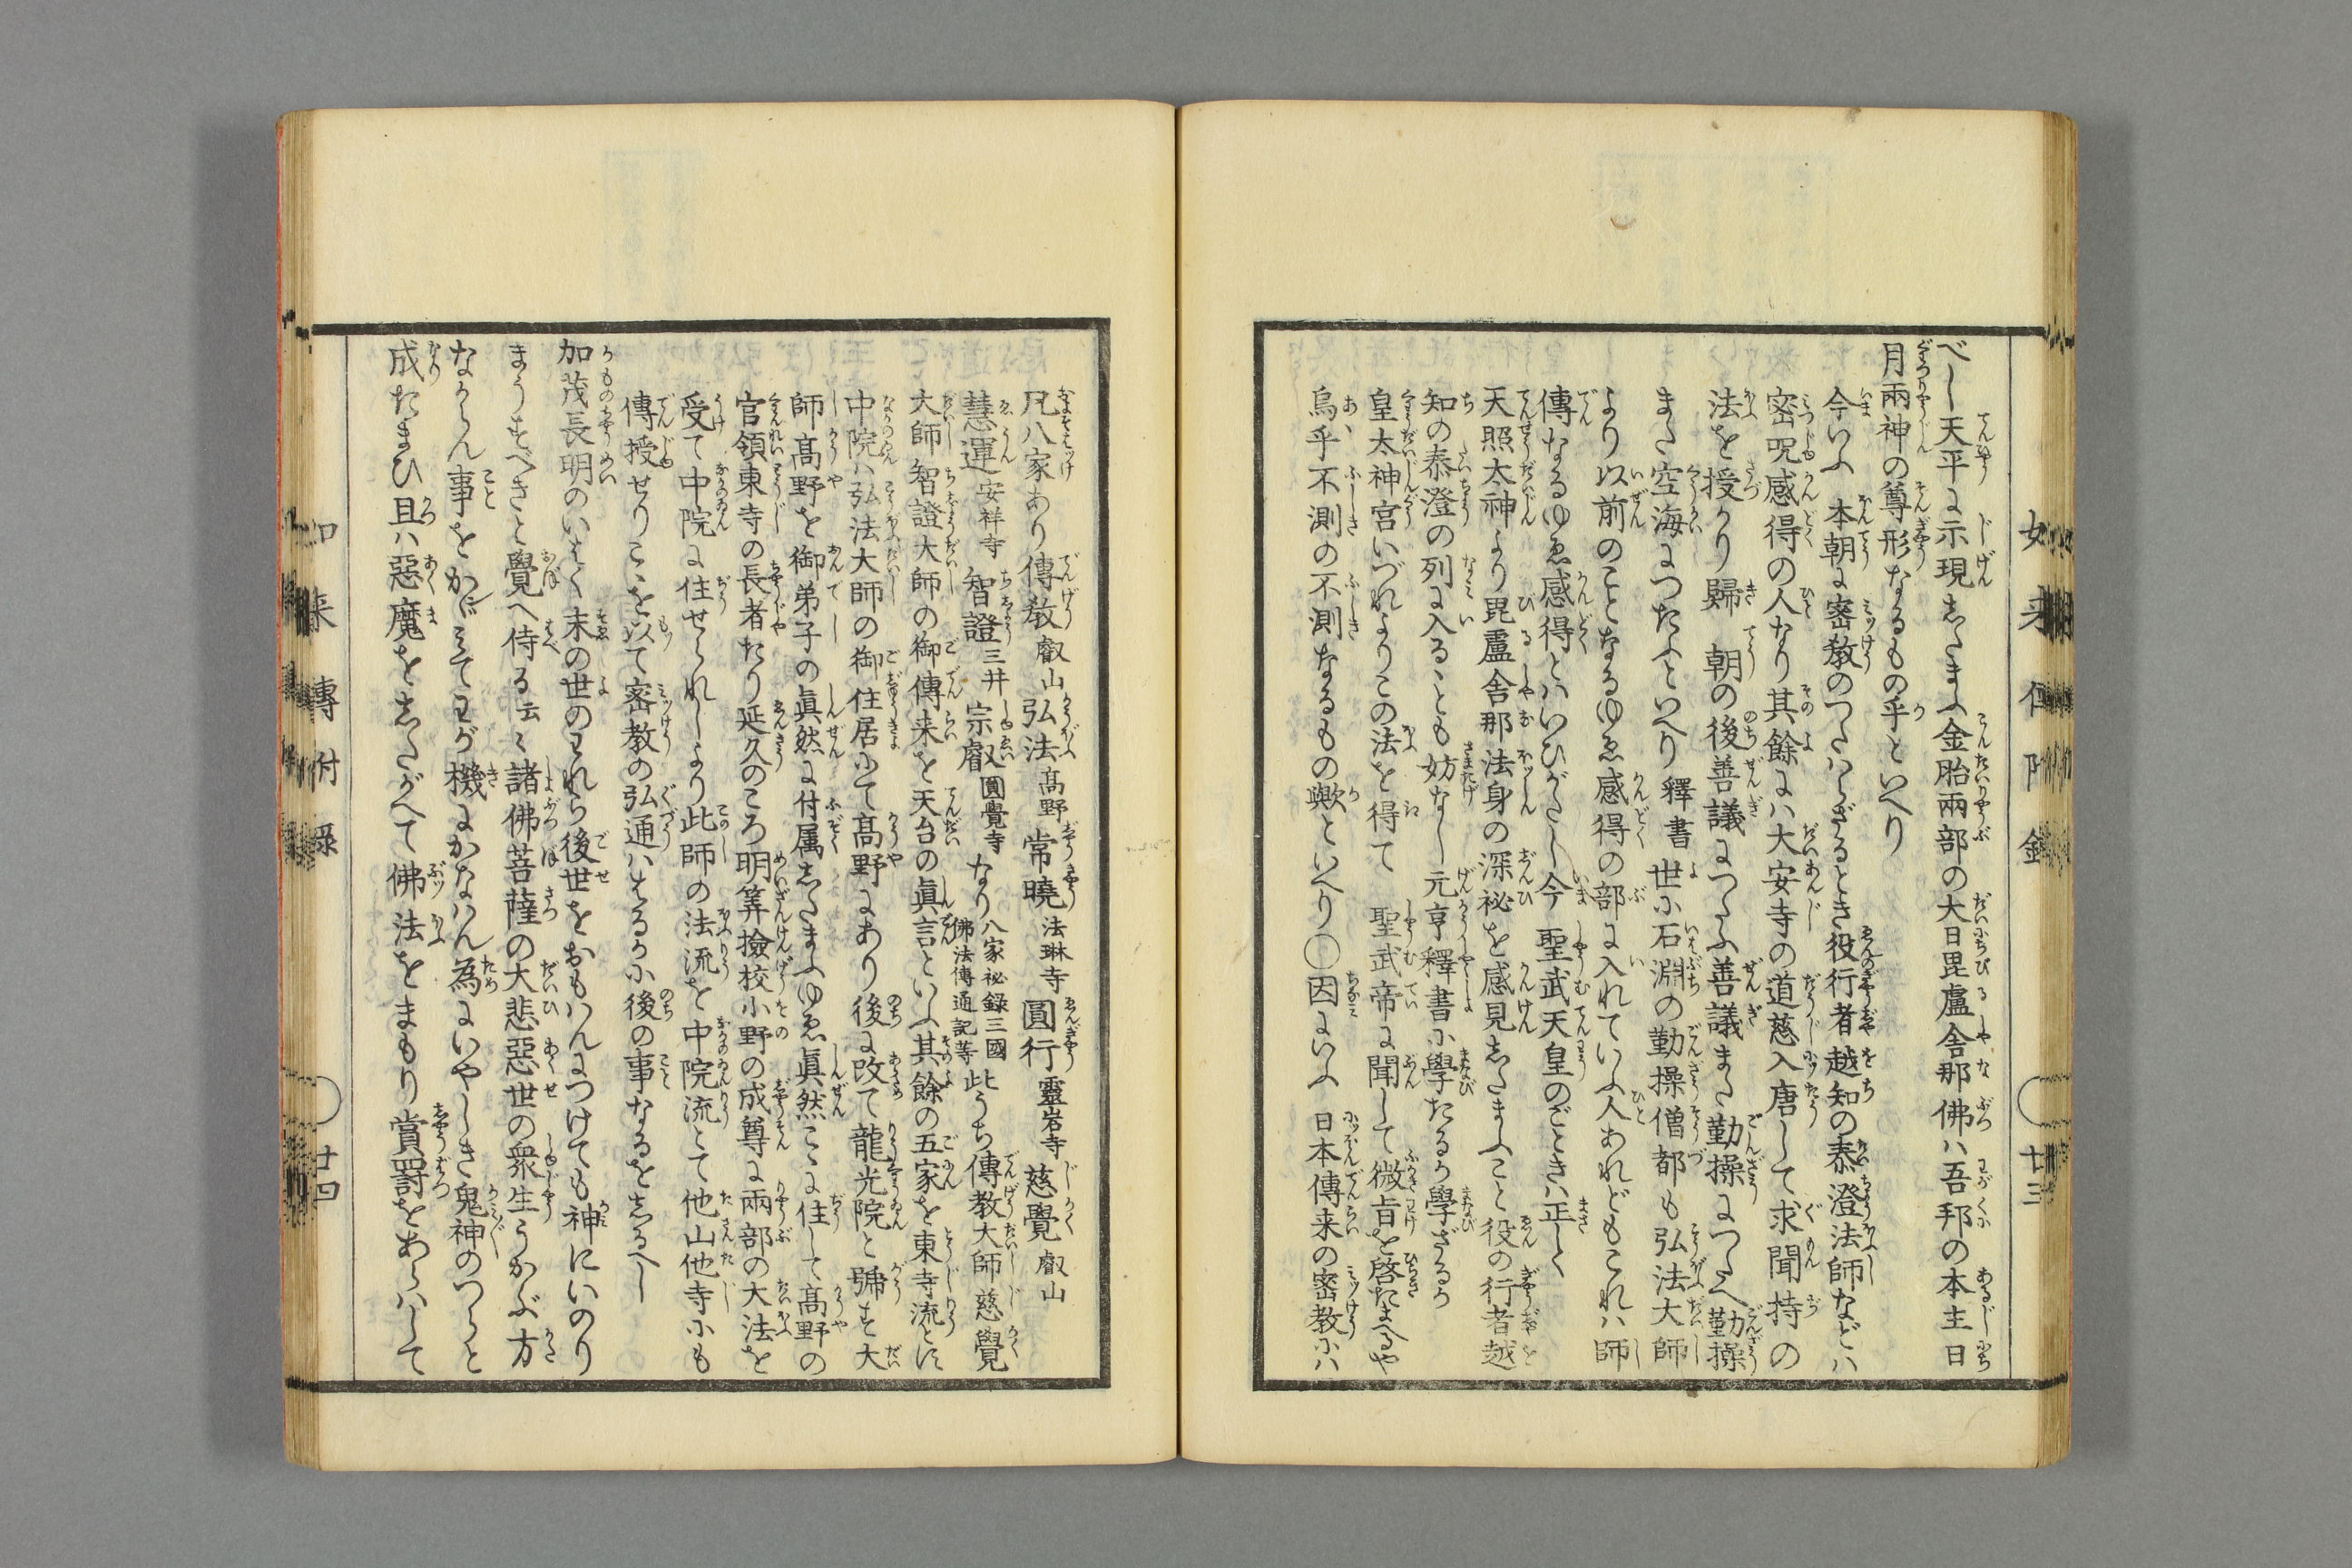 べし天平に示現したまふ金胎兩部の大日毘盧舎那佛ハ吾邦の本主日
月兩神の尊形なるもの乎といへり
今いふ本朝に密教のつたハらざるとき役行者越知の泰澄法師などハ
密呪感得の人なり其餘にハ大安寺の道慈入唐して求聞持の
法を授かり歸朝の後善議につたふ善議また勤操につたへ勤操
また空海につたふといへり釋書世に石淵の勤操僧都も弘法大師
より以前のことなるゆゑ感得の部に入れていふ人あれどもこれハ師
傳なるゆゑ感得とハいひがたし今聖武天皇のごときハ正しく
天照太神より毘盧舎那法身の深祕を感見したまふこと役の行者越
知の泰澄の列に入ることも妨なし元亨釋書に學たるか學ざるか
皇太神宮いづれよりこの法を得て聖武帝に聞して微旨を啓たまへるや
烏乎不測の不測なるもの歟といへり○因にいふ日本傳来の密教にハ
如来傳附錄 廿三
凡八家あり傳敎叡山弘法髙野常曉法琳寺圓行靈岩寺慈覺叡山
慧運安祥寺智證三井宗叡圓覺寺なり八家祕録三國佛法傳通記等此うち傳教大師慈覺
大師智證大師の御傳来を天台の眞言といふ其餘の五家を東寺流とす
中院ハ弘法大師の御住居にて髙野にあり後に改て龍光院と號す大
師髙野を御弟子の眞然に付属したまふゆゑ眞然こゝに住して髙野の
官領東寺の長者たり延久のころ明算撿校小野の成尊に兩部の大法を
受て中院に住せられしより此師の法流を中院流とて他山他寺にも
傳授せりこゝを以て密教の弘通ハはるかに後の事なるをしるへし
加茂長明のいはく末の世のわれら後世をおもハんにつけても神にいのり
まうすべきと覺へ侍る云〻諸佛菩薩の大悲惡世の衆生うかぶ方
なからん事をかゞみてわが機にかなハん為にいやしき鬼神のつらと
成たまひ且ハ惡魔をしたがへて佛法をまもり賞罸をあらハして
如来傳附錄 廿四